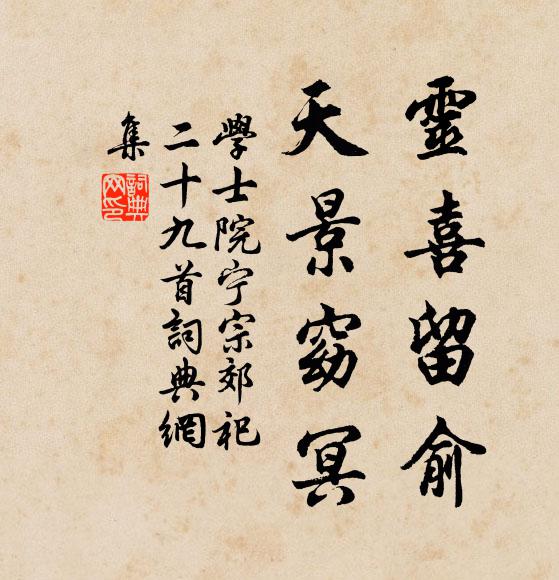 靈喜留俞
天景窈冥
學士院宁宗郊祀
二十九首詞典網
集
詞典網印